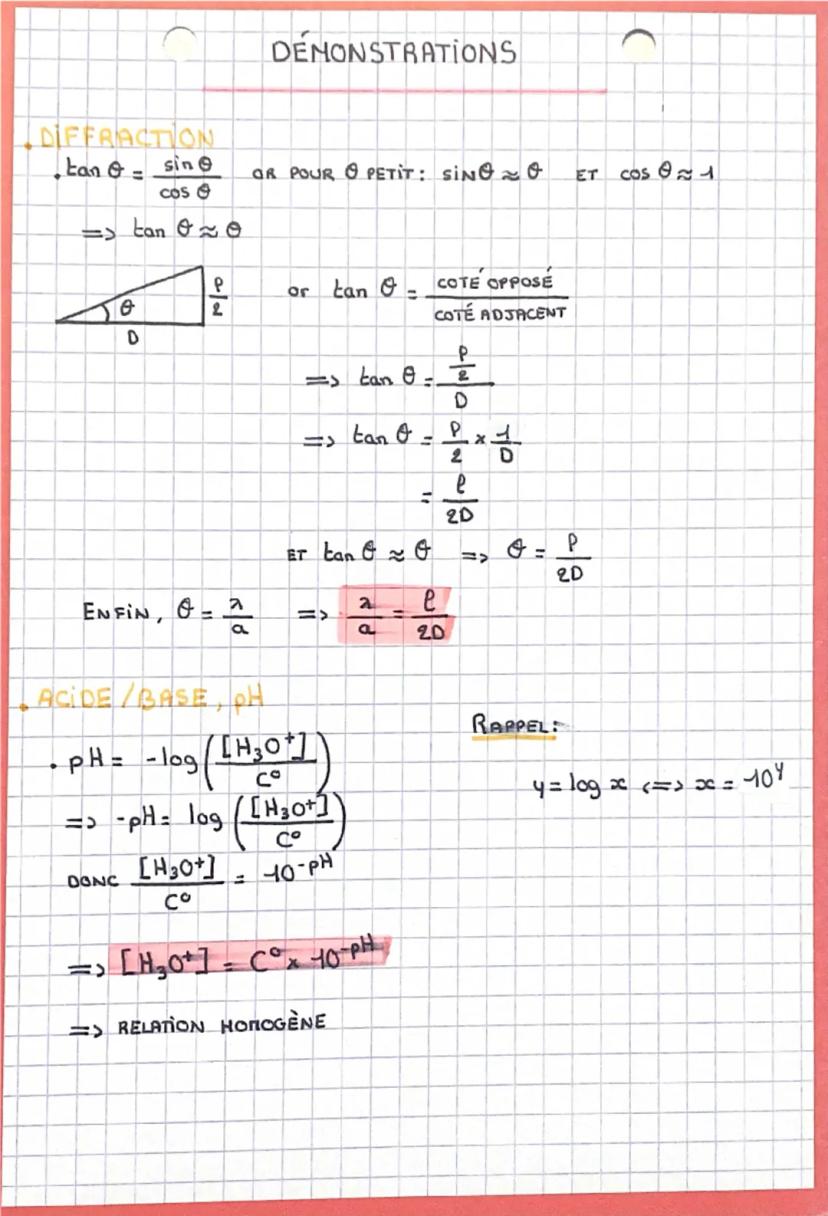 DÉMONSTRATIONS
. DIFFRACTION
. tan θ = sin θ / cos θ OR POUR θ PETIT : sin θ ≈ θ ET cos θ ≈ 1
=> tan θ ≈ θ
θ
ℓ/2
D
or tan θ = COTÉ OPPOSÉ / COTÉ ADJACENT
=> tan θ = (ℓ/2) / D
=> tan θ = ℓ/2 × 1/D
= ℓ/2D
ET tan θ ≈ θ => θ = ℓ/2D
ENFIN, θ = λ/a => λ/a = ℓ/2D
. ACIDE / BASE, pH
. pH = -log([H₃O⁺]/C°)
=> -pH = log([H₃O⁺]/C°)
DONC [H₃O⁺]/C° = 10⁻ᵖᴴ
=> [H₃O⁺] = C° × 10⁻ᵖᴴ
=> RELATION HOMOGÈNE
RAPPEL :
y = log x <=> x = 10^y